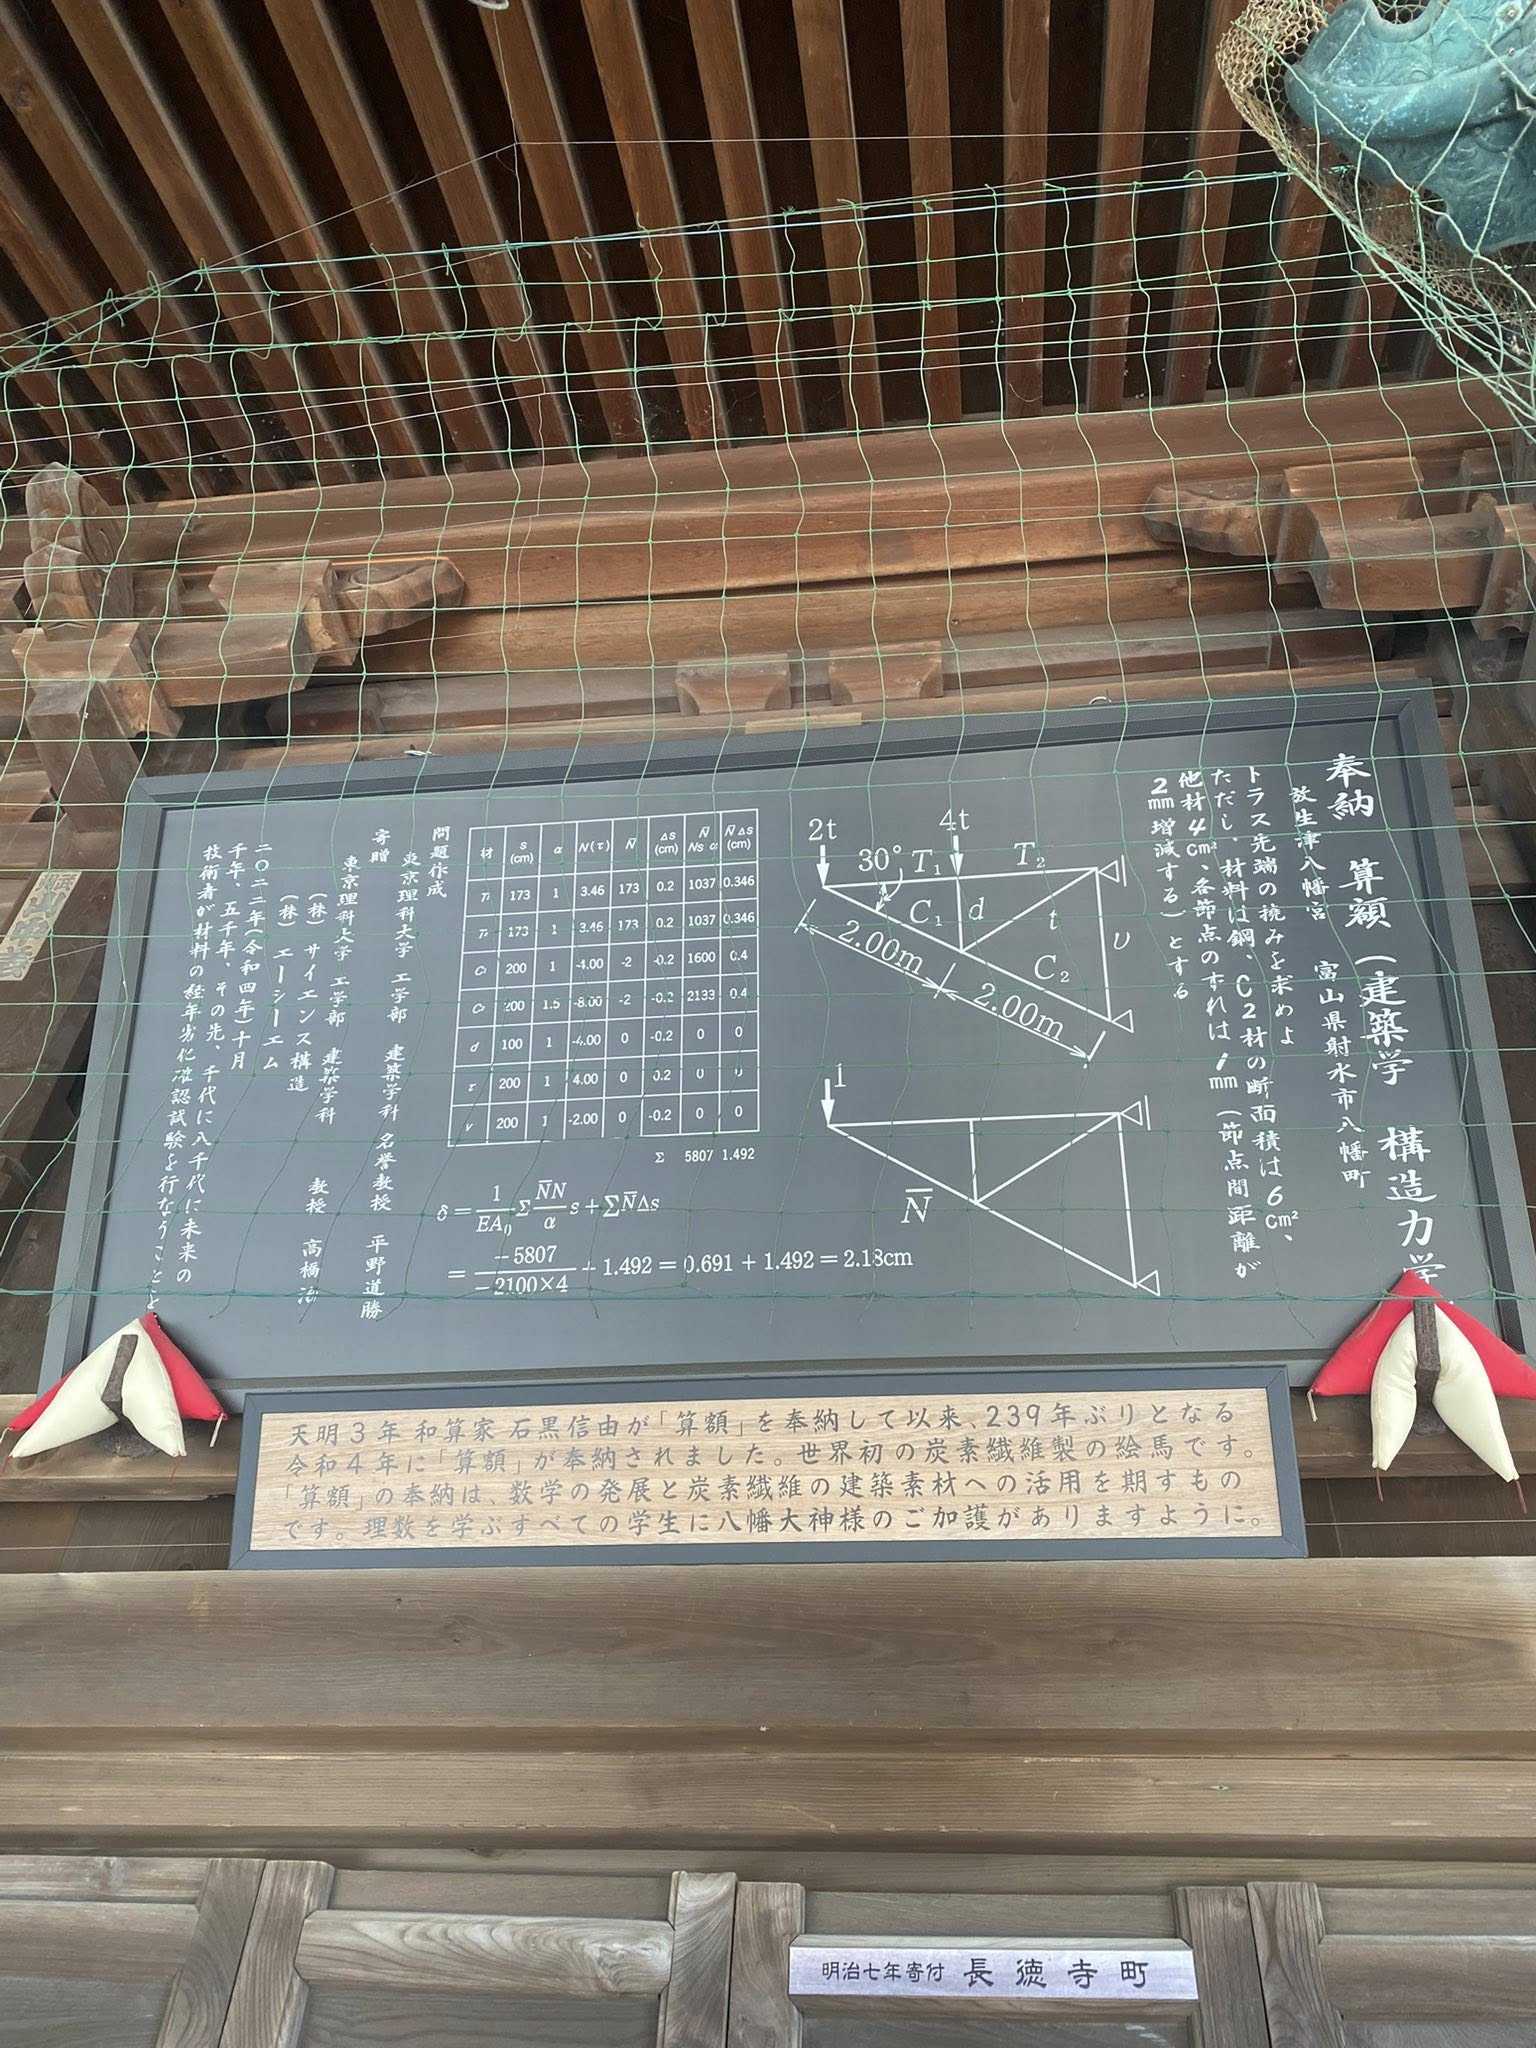 奉納 算額(建築学 構造力学
放生津八幡宮 富山県射水市八幡町
トラス先端の撓みを求めよ
ただし、材料は鋼、C2材の断面積は6c㎡、
他材4c㎡、各節点のずれは1mm(節点間距離が
2mm増減する)とする
2t
4t
30° T₁ T₂
C₁ d t υ
C₂
2.00m
2.00m
1
N̄
材 s (cm) α N(τ) N̄ Δs (cm) N̄ Ns α N̄Δs (cm)
173 1 3.46 173 0.2 1037 0.346
173 1 3.46 173 0.2 1037 0.346
200 1 -4.00 -2 -0.2 1600 0.4
200 1.5 -8.00 -2 -0.2 2133 0.4
d 100 1 -4.00 0 -0.2 0 0
τ 200 1 4.00 0 0.2 0 0
v 200 1 -2.00 0 -0.2 0 0
Σ 5807 1.492
δ = 1/EA₀ Σ N̄N/α s + ΣN̄Δs
= -5807/-2100×4 + 1.492 = 0.691 + 1.492 = 2.18cm
問題作成
東京理科大学 工学部 建築学科 名誉教授 平野道勝
寄贈
東京理科大学 工学部 建築学科 教授 高橋治
(株)サイエンス構造
(株)エーシーエム
二〇二二年(令和四年)十月
千年、五千年、その先、千代に八千代に未来の
技術者が材料の経年劣化確認試験を行なうことを
天明3年 和算家 石黒信由が「算額」を奉納して以来、239年ぶりとなる
令和4年に「算額」が奉納されました。世界初の炭素繊維製の絵馬です。
「算額」の奉納は、数学の発展と炭素繊維の建築素材への活用を期すもの
です。理数を学ぶすべての学生に八幡大神様のご加護がありますように。
明治七年寄付 長徳寺町